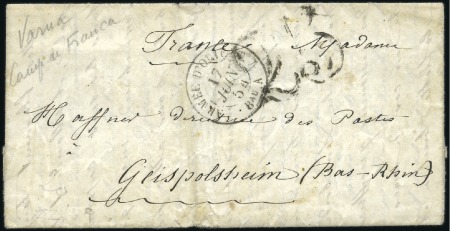 Varna
Camp de Franca
France Madame
ARMÉE D'O
17
JUIN
54
Haffner directrice des Postes
à
Geispolsheim (Bas-Rhin)